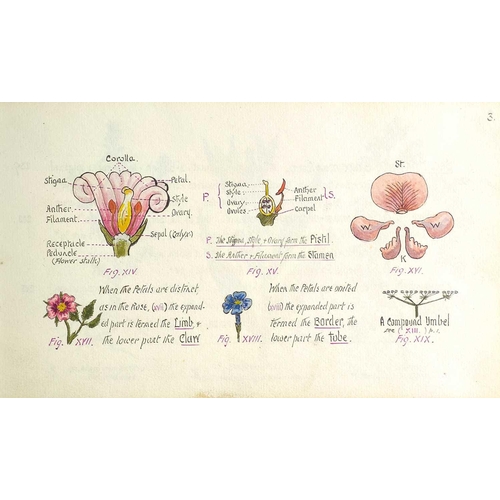 3.
Corolla.
Stigma
Petal.
Style
Ovary.
Anther
Filament.
Sepal (Calyx)
Receptacle
Peduncle
(Flower Stalk)
Fig. XIV
P.
Stigma
Style
Ovary
Ovules
Anther
Filament
Carpel
S.
P. The Stigma, Style + Ovary form the Pistil.
S. The Anther + Filament form the Stamen
Fig. XV.
St.
W
W
K
Fig. XVI.
When the Petals are distinct
as in the Rose, (XVII) the expand-
ed part is termed the Limb, +
the lower part the Claw
Fig. XVII.
When the Petals are united
(XVIII) the expanded part is
termed the Border, the
lower part the tube.
Fig. XVIII.
A Compound Umbel
see (XIII.)
Fig. XIX.